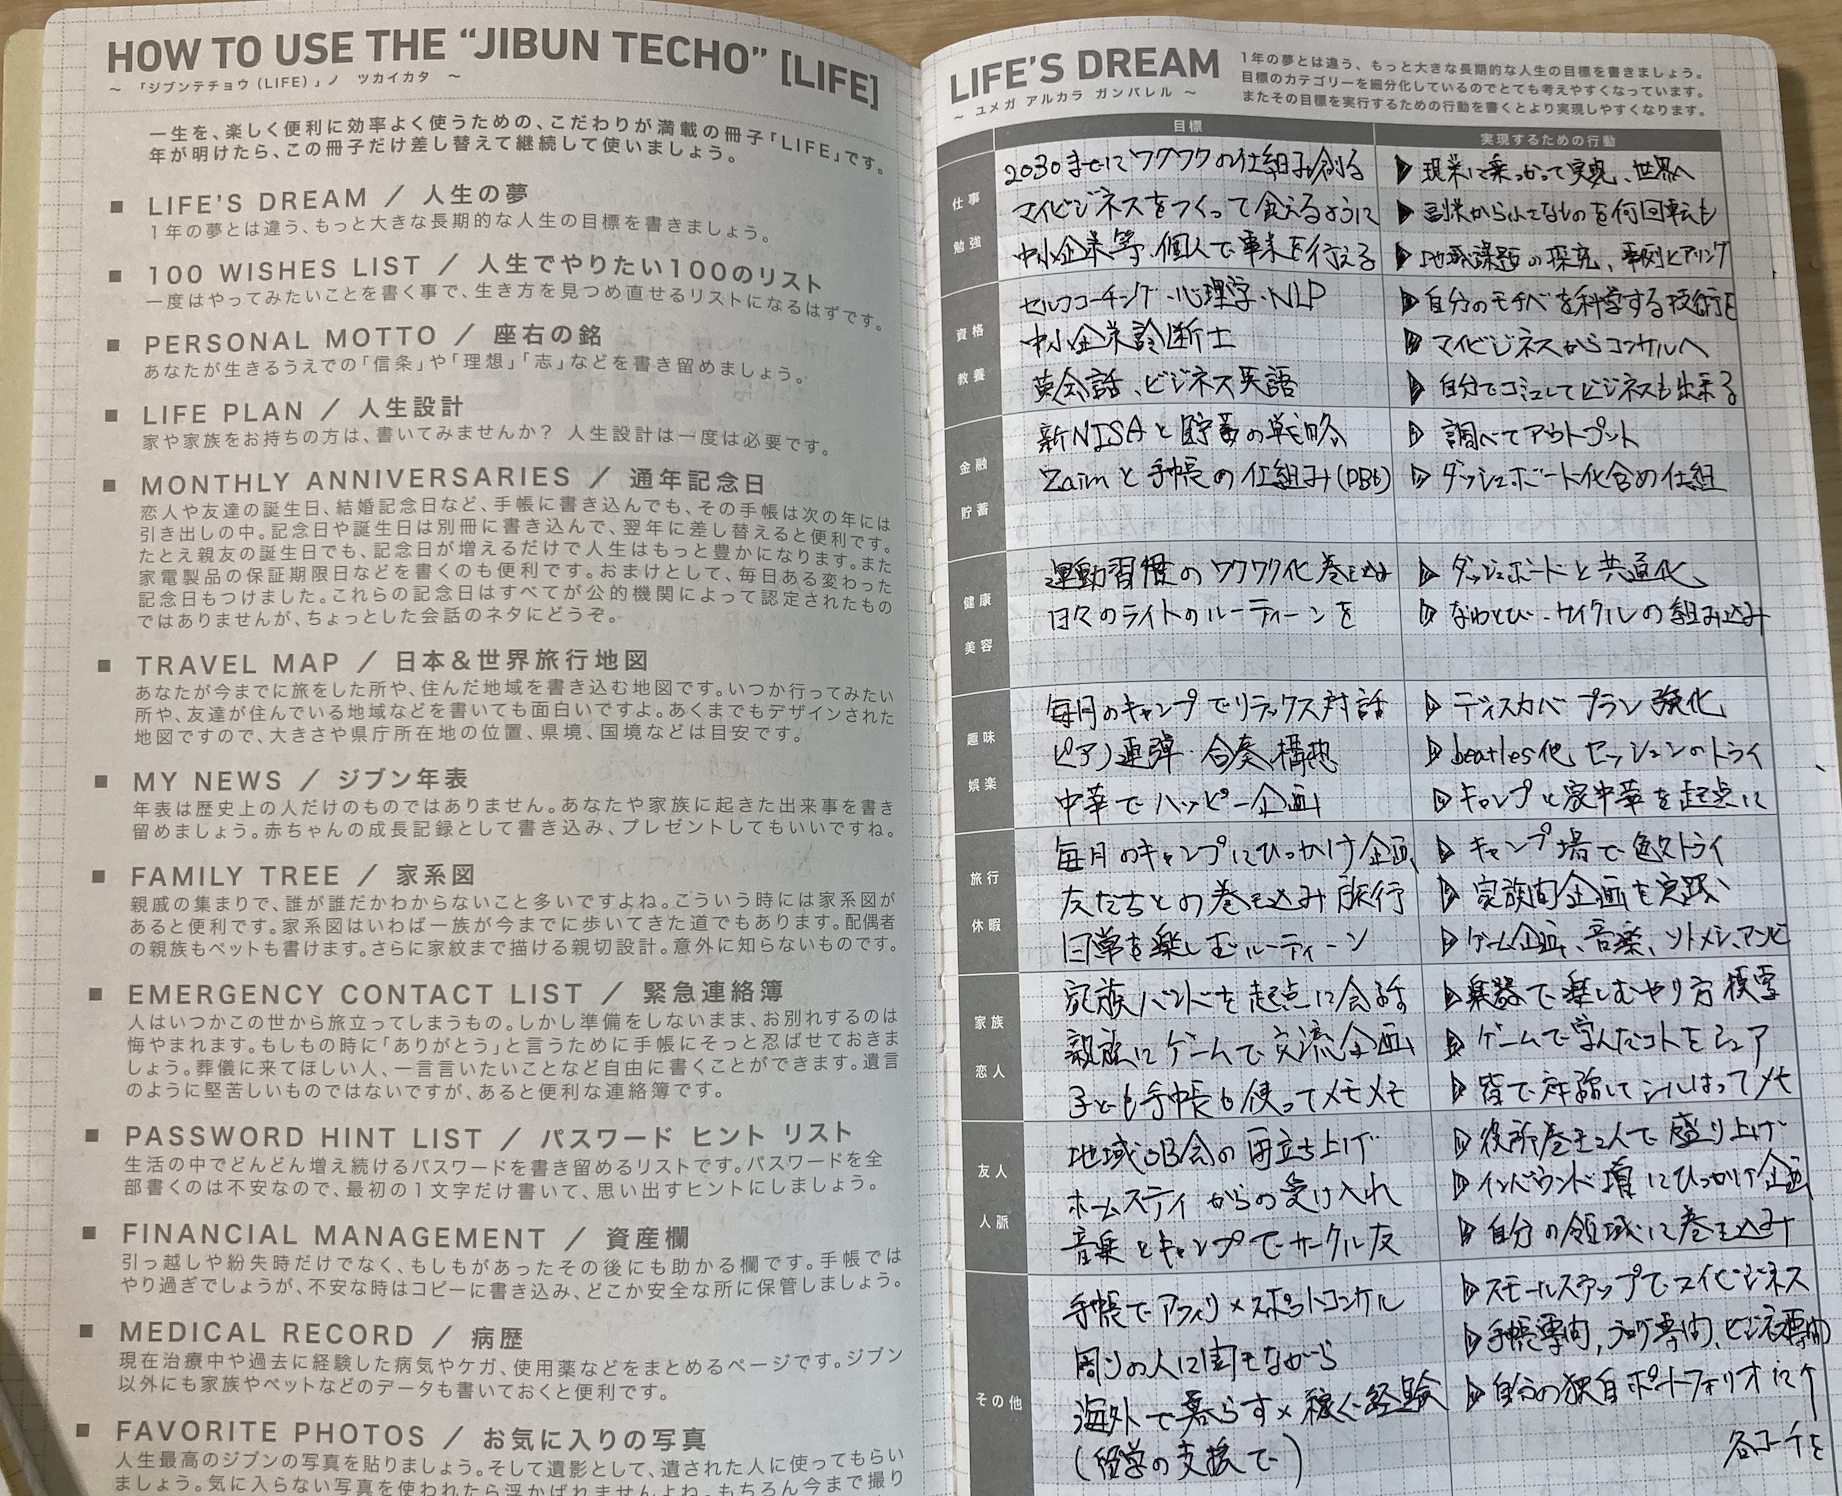 HOW TO USE THE “JIBUN TECHO” [LIFE]
～ 「ジブンテチョウ（LIFE）」ノ ツカイカタ ～
一生を、楽しく便利に効率よく使うための、こだわりが満載の冊子「LIFE」です。
年が明けたら、この冊子だけ差し替えて継続して使いましょう。
■ LIFE'S DREAM / 人生の夢
1年の夢とは違う、もっと大きな長期的な人生の目標を書きましょう。
■ 100 WISHES LIST / 人生でやりたい100のリスト
一度はやってみたいことを書く事で、生き方を見つめ直せるリストになるはずです。
■ PERSONAL MOTTO / 座右の銘
あなたが生きるうえでの「信条」や「理想」「志」などを書き留めましょう。
■ LIFE PLAN / 人生設計
家や家族をお持ちの方は、書いてみませんか？ 人生設計は一度は必要です。
■ MONTHLY ANNIVERSARIES / 通年記念日
恋人や友達の誕生日、結婚記念日など、手帳に書き込んでも、その手帳は次の年には
引き出しの中。記念日や誕生日は別冊に書き込んで、翌年に差し替えると便利です。
たとえ親友の誕生日でも、記念日が増えるだけで人生はもっと豊かになります。また
家電製品の保証期限日などを書くのも便利です。おまけとして、毎日ある変わった
記念日もつけました。これらの記念日はすべてが公的機関によって認定されたもの
ではありませんが、ちょっとした会話のネタにどうぞ。
■ TRAVEL MAP / 日本＆世界旅行地図
あなたが今までに旅をした所や、住んだ地域を書き込む地図です。いつか行ってみたい
所や、友達が住んでいる地域などを書いても面白いですよ。あくまでもデザインされた
地図ですので、大きさや県庁所在地の位置、県境、国境などは目安です。
■ MY NEWS / ジブン年表
年表は歴史上の人だけのものではありません。あなたや家族に起きた出来事を書き
留めましょう。赤ちゃんの成長記録として書き込み、プレゼントしてもいいですね。
■ FAMILY TREE / 家系図
親戚の集まりで、誰が誰だかわからないこと多いですよね。こういう時には家系図が
あると便利です。家系図はいわば一族が今までに歩いてきた道でもあります。配偶者
の親族もペットも書けます。さらに家紋まで描ける親切設計。意外に知らないものです。
■ EMERGENCY CONTACT LIST / 緊急連絡簿
人はいつかこの世から旅立ってしまうもの。しかし準備をしないまま、お別れするのは
悔やまれます。もしもの時に「ありがとう」と言うために手帳にそっと忍ばせておきま
しょう。葬儀に来てほしい人、一言言いたいことなど自由に書くことができます。遺言
のように堅苦しいものではないですが、あると便利な連絡簿です。
■ PASSWORD HINT LIST / パスワード ヒント リスト
生活の中でどんどん増え続けるパスワードを書き留めるリストです。パスワードを全
部書くのは不安なので、最初の1文字だけ書いて、思い出すヒントにしましょう。
■ FINANCIAL MANAGEMENT / 資産欄
引っ越しや紛失時だけでなく、もしもがあったその後にも助かる欄です。手帳では
やり過ぎでしょうが、不安な時はコピーに書き込み、どこか安全な所に保管しましょう。
■ MEDICAL RECORD / 病歴
現在治療中や過去に経験した病気やケガ、使用薬などをまとめるページです。ジブン
以外にも家族やペットなどのデータも書いておくと便利です。
■ FAVORITE PHOTOS / お気に入りの写真
人生最高のジブンの写真を貼りましょう。そして遺影として、遺された人に使ってもらい
ましょう。気に入らない写真を使われたら浮かばれませんよね。もちろん今まで撮り
LIFE'S DREAM
～ ユメガ アルカラ ガンバレル ～
1年の夢とは違う、もっと大きな長期的な人生の目標を書きましょう。
目標のカテゴリーを細分化しているのでとても考えやすくなっています。
またその目標を実行するための行動を書くとより実現しやすくなります。
目標 実現するための行動
仕事
勉強
2030までにワクワクの仕組み創る ▶現業に乗っかって実現、世界へ
マイビジネスをつくって食えるように ▶副業から小さなものを何回転も
中小企業等、個人で事業を行える ▶地域課題の探究、事例ヒアリング
資格
教養
セルフコーチング・心理学・NLP ▶自分のモチベを科学する技術を
中小企業診断士 ▶マイビジネスからコンサルへ
英会話、ビジネス英語 ▶自分でコミュしてビジネスも出来る
金融
貯蓄
新NISAと貯蓄の戦略 ▶調べてアウトプット
Zaimと手帳の仕組み(DB6) ▶ダッシュボード化含め仕組
健康
美容
運動習慣のワクワク化 巻き込み ▶ダッシュボードと共通化
日々のライトのルーティーンを ▶なわとび、サイクルの組み込み
趣味
娯楽
毎月のキャンプでリラックス対話 ▶ディスカバープラン強化
ピアノ連弾・合奏構想 ▶beatles化、セッションのトライ
中華でハッピー企画 ▶キャンプと家中華を起点に
旅行
休暇
毎月のキャンプにひっかけ企画 ▶キャンプ場で色々トライ
友たちとの巻き込み旅行 ▶家族内企画を実践
日常を楽しむルーティーン ▶ゲーム企画、音楽、ソトメシ、アソビ
家族
恋人
家族バンドを起点に会話 ▶楽器で楽しむやり方模索
親族にゲームで交流企画 ▶ゲームで学んだコトをシェア
子ども手帳も使ってメモメモ ▶皆で勉強してシールはってメモ
友人
人脈
地域OB会の再立ち上げ ▶役所巻き込んで盛り上げ
ホームステイからの受け入れ ▶インバウンド増にひっかけ企画
音楽とキャンプでサークル友 ▶自分の領域に巻き込み
その他
手帳でアフィリ×スポットコンサル ▶スモールステップでマイビジネス
周りの人に聞きながら ▶手帳専門、ブログ専門、ビジネス専門
海外で暮らす×稼ぐ経験 ▶自分の独自ポートフォリオに
(留学の支援で) 各コーチを